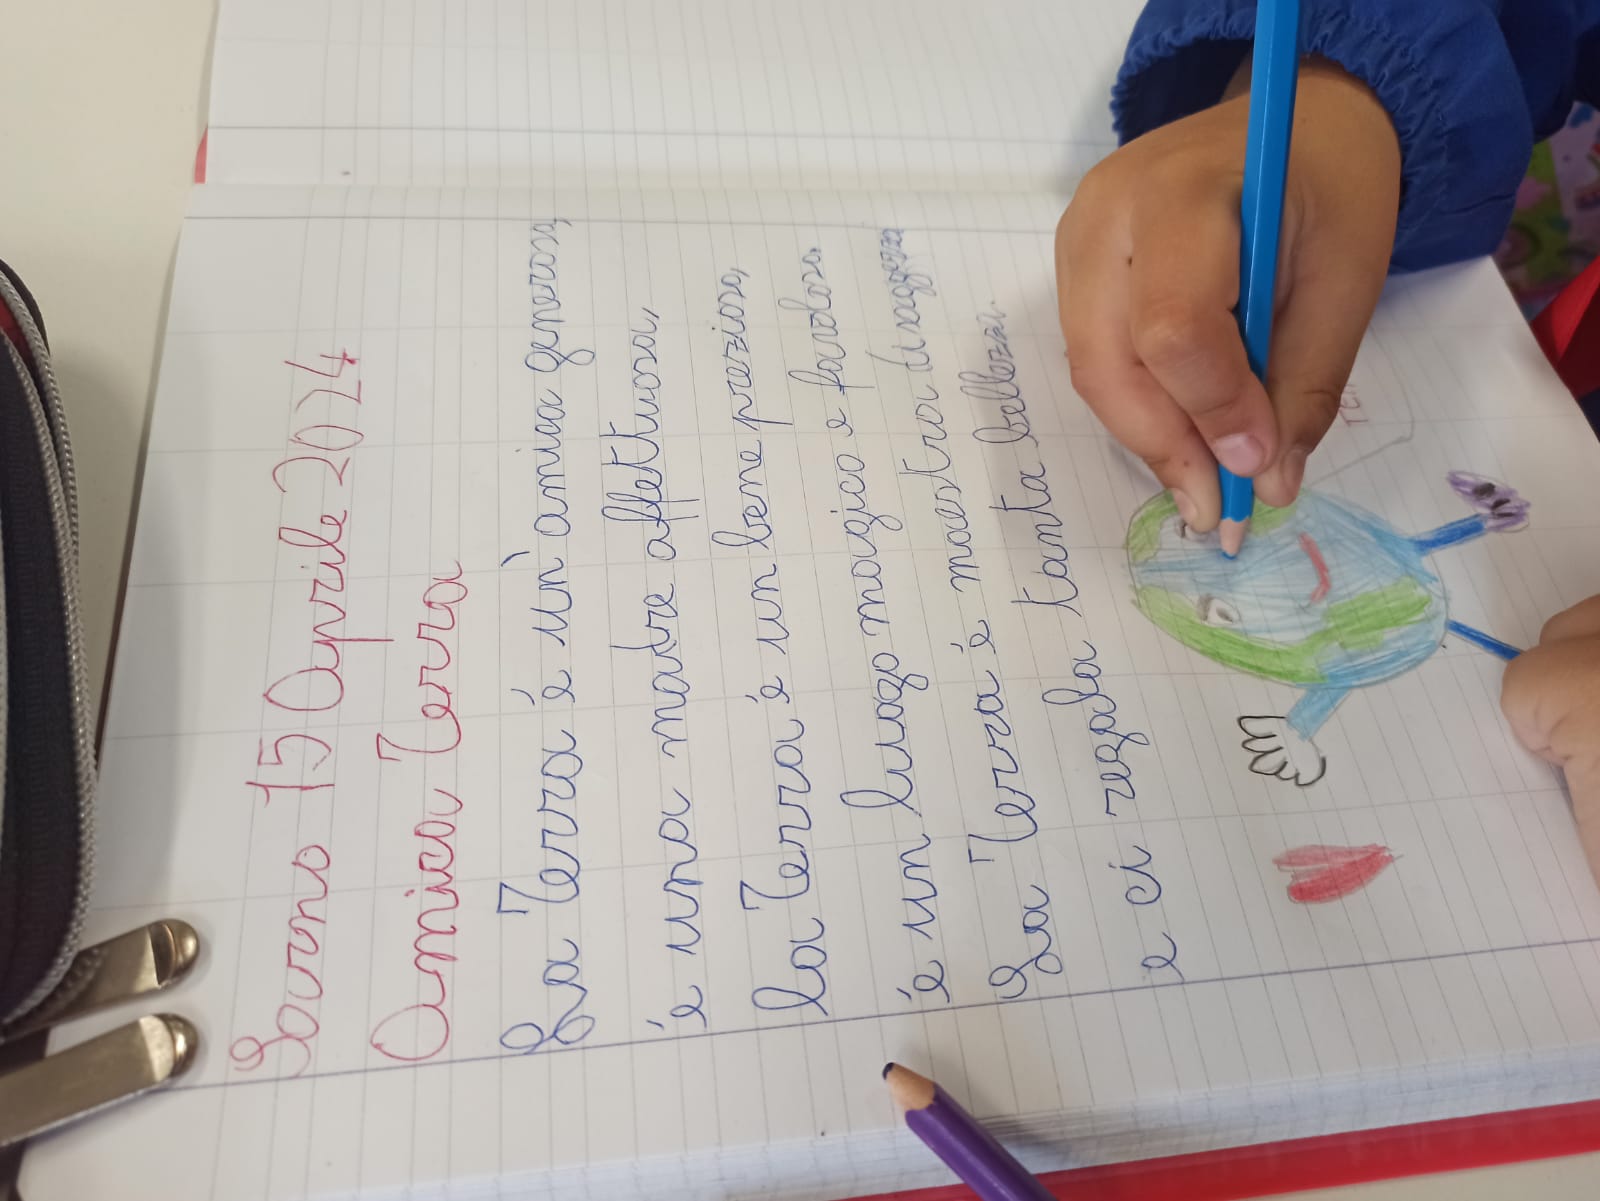 Sarno 15 Aprile 2024
Amica Terra
La Terra é un' amica generosa,
é una madre affettuosa,
la Terra é un bene prezioso,
é un luogo magico e favoloso.
La Terra é maestra di saggezza
e ci regala tanta bellezza.